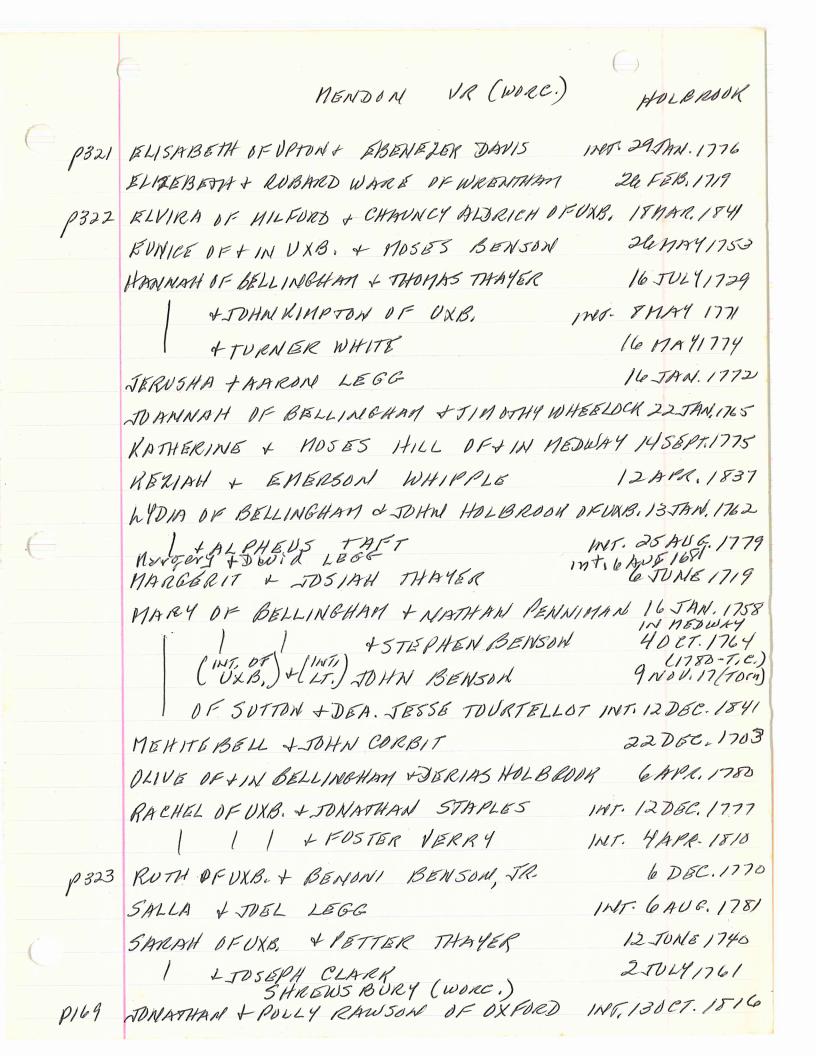 MENDON VR (WORC.) HOLBROOK
p321 ELISABETH OF UPTON + EBENEZER DAVIS INT. 29 JAN. 1776
ELIZEBETH + ROBARD WARE OF WRENTHAM 26 FEB. 1719
p322 ELVIRA OF MILFORD + CHAUNCY ALDRICH OF UXB. 18 MAR. 1841
EUNICE OF + IN UXB. + MOSES BENSON 26 MAY 1753
HANNAH OF BELLINGHAM + THOMAS THAYER 16 JULY 1729
| + JOHN KIMPTON OF UXB. INT. 8 MAY 1771
| + TURNER WHITE 16 MAY 1774
JERUSHA + AARON LEGG 16 JAN. 1772
JOANNAH OF BELLINGHAM + TIMOTHY WHEELOCK 22 JAN. 1765
KATHERINE + MOSES HILL OF + IN MEDWAY 14 SEPT. 1775
KEZIAH + EMERSON WHIPPLE 12 APR. 1837
LYDIA OF BELLINGHAM + JOHN HOLBROOK OF UXB. 13 JAN. 1762
| + ALPHEUS TAFT INT. 25 AUG. 1779
Margery + David LEGG int. 6 AUG 1681
MARGERIT + JOSIAH THAYER 6 JUNE 1719
MARY OF BELLINGHAM + NATHAN PENNIMAN 16 JAN. 1758
IN MEDWAY
| | | + STEPHEN BENSON 4 OCT. 1764
(INT. OF UXB.) + (INT. LT.) JOHN BENSON (1780-T.C.) 9 NOV. 17 (TORN)
OF SUTTON + DEA. JESSE TOURTELLOT INT. 12 DEC. 1841
MEHITEBELL + JOHN CORBIT 22 DEC. 1703
OLIVE OF + IN BELLINGHAM + DERIAS HOLBROOK 6 APR. 1780
RACHEL OF UXB. + JONATHAN STAPLES INT. 12 DEC. 1777
| | | + FOSTER VERRY INT. 4 APR. 1810
p323 RUTH OF UXB. + BENONI BENSON, JR. 6 DEC. 1770
SALLA + JOEL LEGG INT. 6 AUG. 1781
SARAH OF UXB. + PETTER THAYER 12 JUNE 1740
| + JOSEPH CLARK 2 JULY 1761
SHREWSBURY (WORC.)
p169 JONATHAN + POLLY RAWSON OF OXFORD INT. 13 OCT. 1816